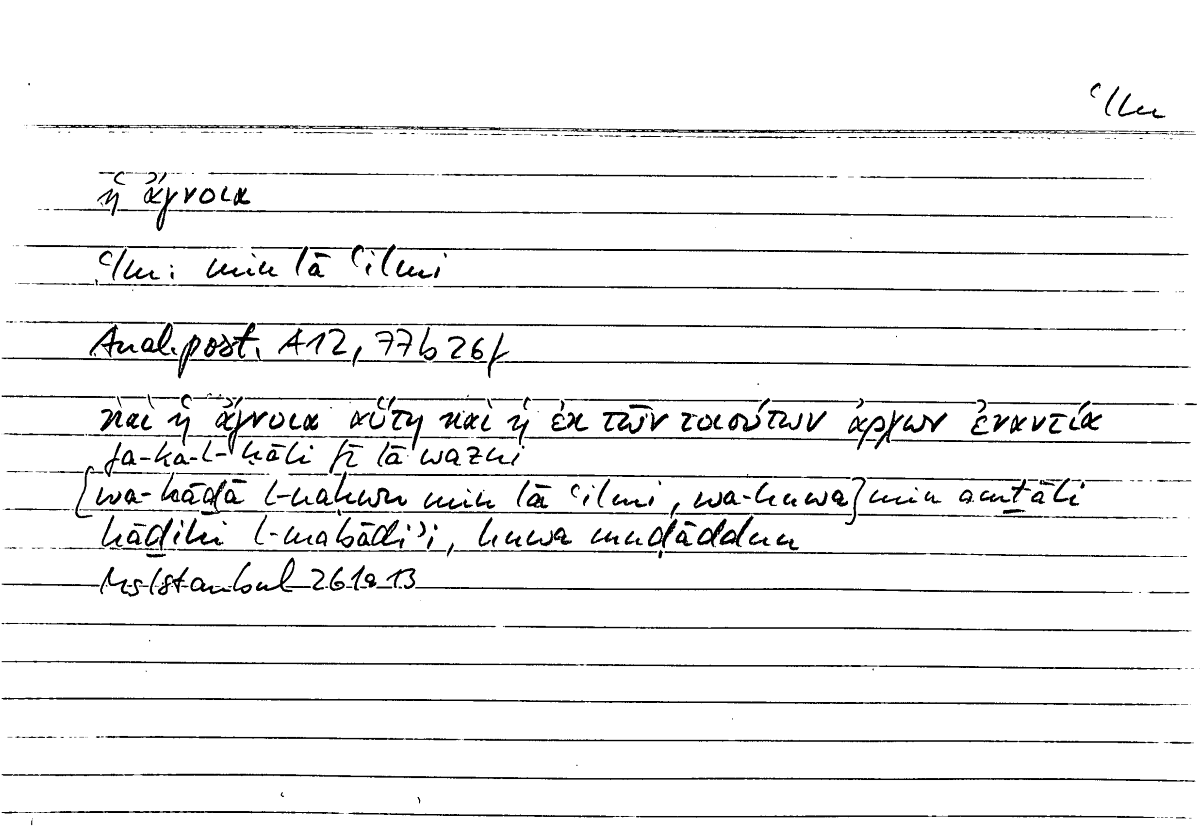 ʿlm
ἡ ἄγνοια
ʿlm: min lā ʿilmi
Anal.post. A12, 77b26f
καὶ ἡ ἄγνοια αὕτη καὶ ἡ ἐκ τῶν τοιούτων ἀρχῶν ἐναντία
fa-ka-l-ḥāli fī lā wazni
[wa-hāḏā l-naḥwu min lā ʿilmi, wa-huwa] min amṯāli
hāḏihi l-mabādiʾi, huwa muḍāddun
MsIstanbul 261a13